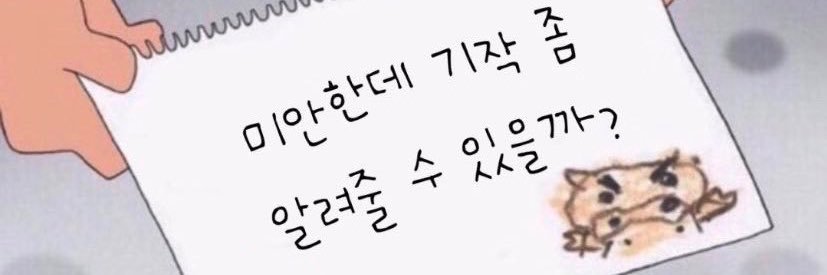 미안한데 기작 좀
알려줄 수 있을까?